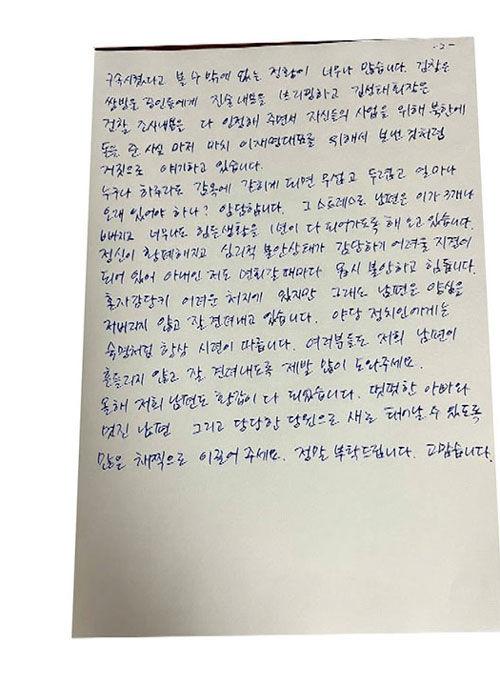 -2-
구속시켰다고 볼 수 밖에 없는 정황이 너무나 많습니다. 검찰은
쌍방울 증인들에게 진술내용을 브리핑하고 김성태 회장은
검찰 조사내용은 다 인정해 주면서 자신들의 사업을 위해 북한에
돈을 준 사실 마저 마치 이재명대표를 위해서 보낸 것처럼
거짓으로 얘기하고 있습니다.
누구나 하루라도 감옥에 갇히게 되면 무섭고 두렵고 얼마나
오래 있어야 하나? 암담합니다. 그 스트레스로 남편은 이가 3개나
빠지고 너무나도 힘든생활을 1년이 다 되어가도록 해 오고 있습니다.
정신이 황폐해지고 심리적 불안상태가 감당하기 어려울 지경이
되어 있어 아내인 저도 면회갈때마다 몹시 불안하고 힘듭니다.
혼자감당키 어려운 처지에 있지만 그래도 남편은 양심을
저버리지 않고 잘 견뎌내고 있습니다. 야당 정치인에게는
숙명처럼 항상 시련이 따릅니다. 여러분들도 저희 남편이
흔들리지 않고 잘 견뎌내도록 제발 많이 도와주세요.
올해 저희 남편도 환갑이 다 되었습니다. 떳떳한 아빠와
멋진 남편 그리고 당당한 당원으로 새로 태어날 수 있도록
많은 채찍으로 이끌어 주세요. 정말 부탁드립니다. 고맙습니다.